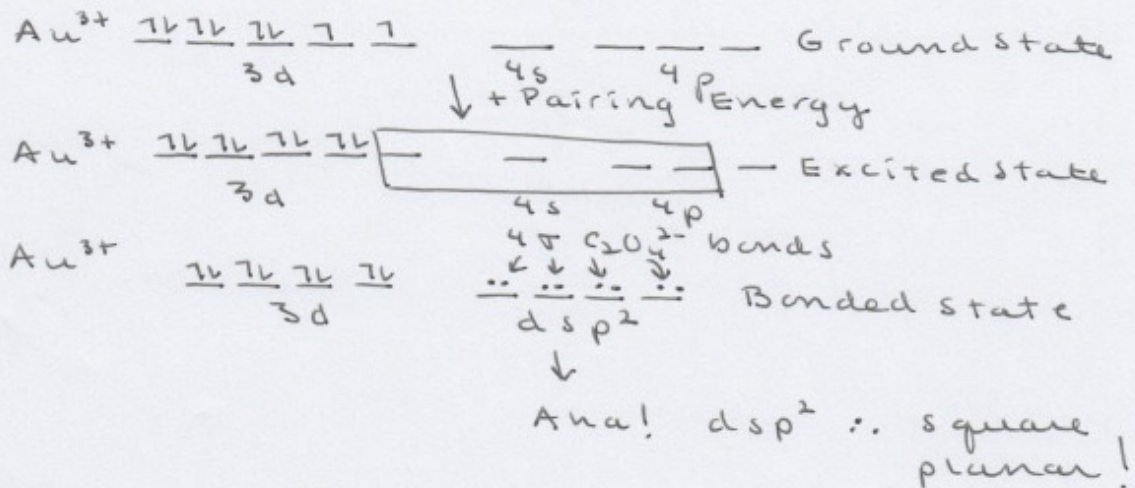 Au³⁺ 1L 1L 1L 1 1 Ground State
3d 4s 4p
↓ + Pairing Energy
Au³⁺ 1L 1L 1L 1L Excited state
3d 4s 4p
4σ C₂O₄²⁻ bonds
Au³⁺ 1L 1L 1L 1L Bonded state
3d dsp²
↓
Aha! dsp² ∴ square
planar!